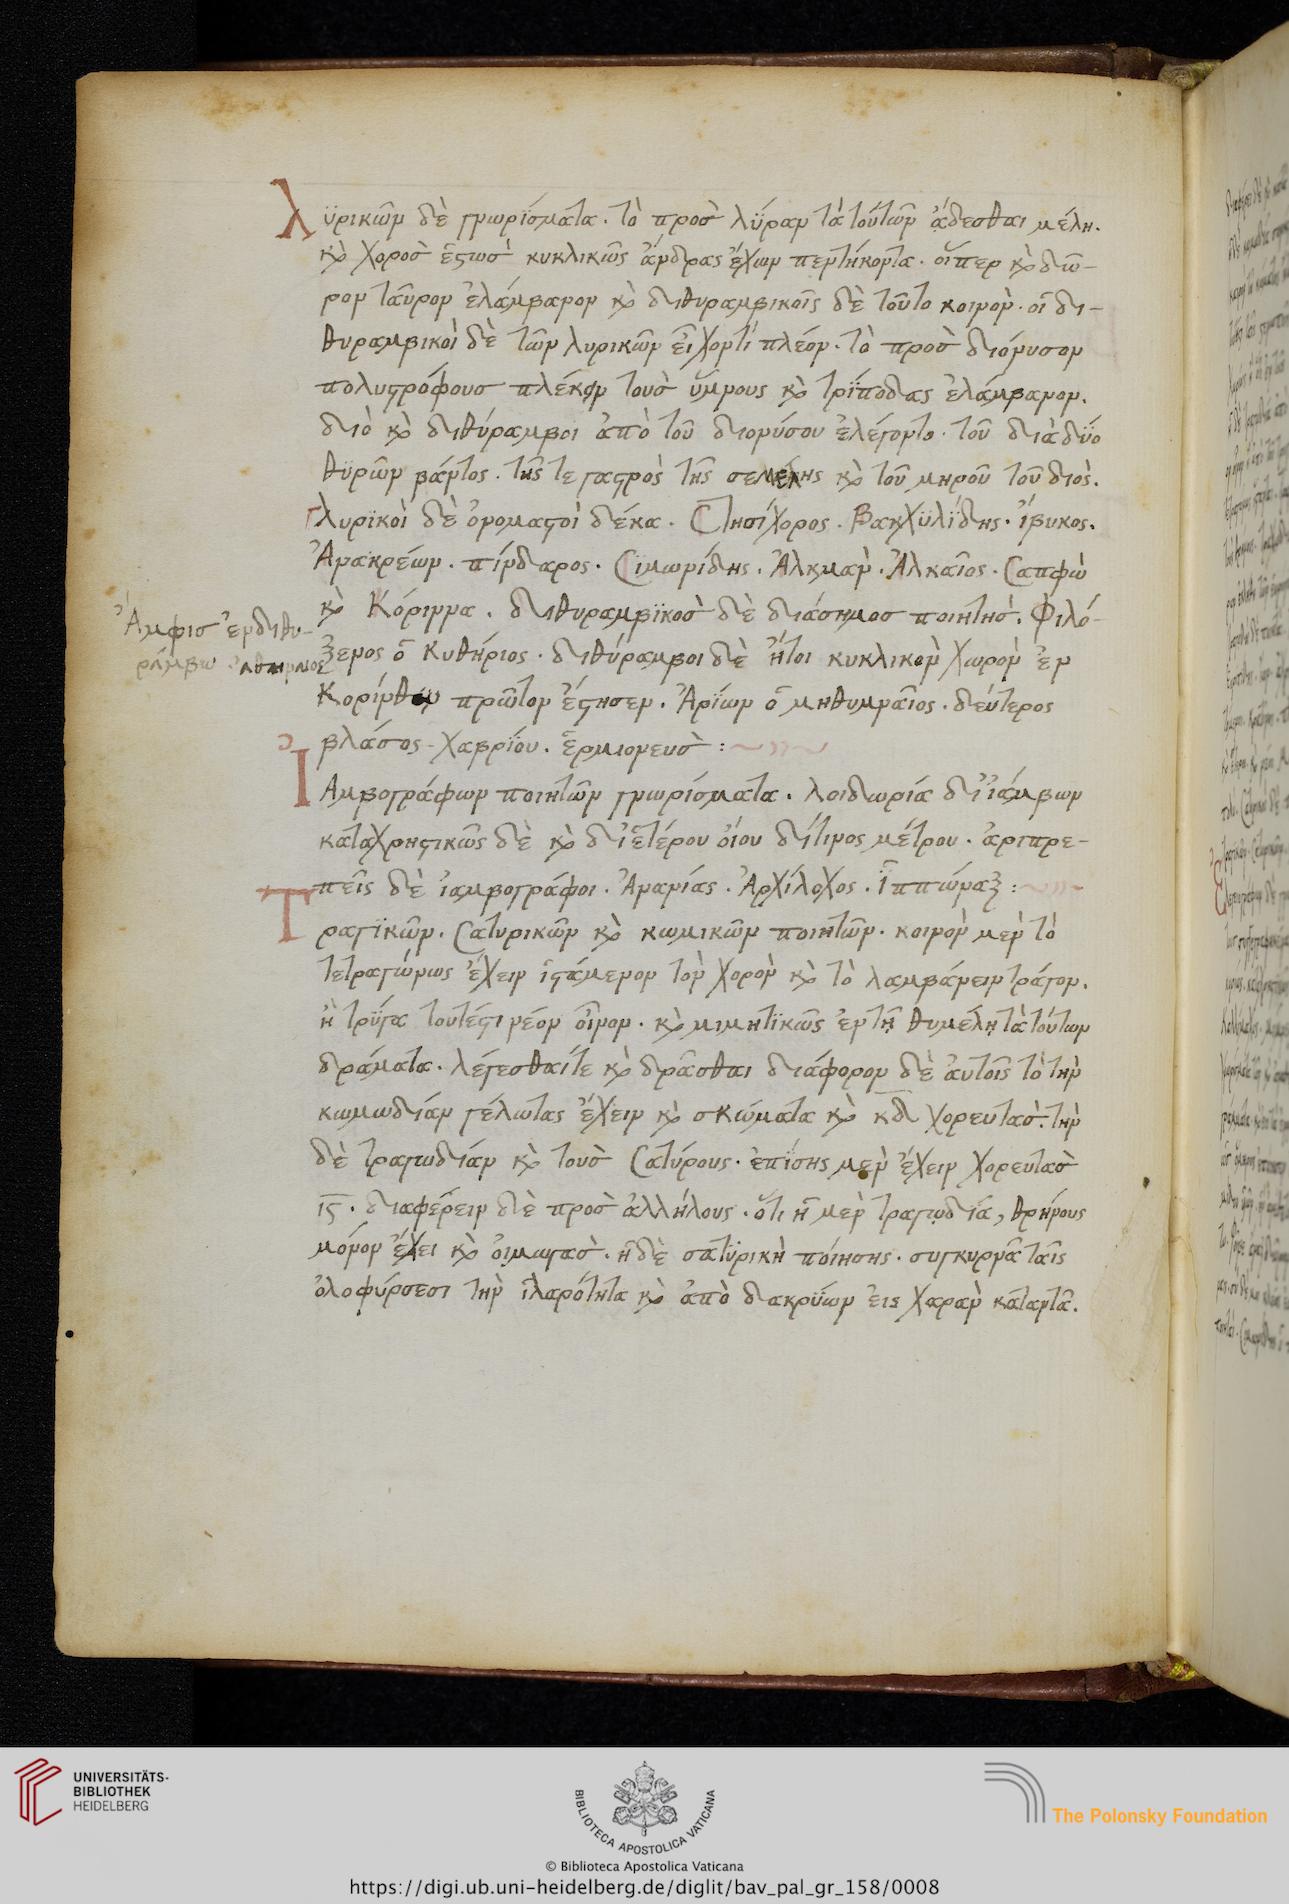 Λϋρικῶν δὲ γνωρίσματα. τὸ προσ λύραν τὰ τούτων ᾄδεσθαι μέλη.
κὶ χοροσ ἑστωσ κυκλικῶς ἄνδρας ἔχων πεντήκοντα. οἵπερ κὶ δῶ-
ρον ταῦρον ἐλάμβανον κὶ διθυραμβικοῖς δὲ τοῦτο κοινὸν. οἱ δι-
θυραμβικοὶ δὲ τῶν λυρικῶν εἶχον τὶ πλέον. τὸ προσ διόνυσον
πολυστρόφουσ πλέκειν τουσ ὕμνους κὶ τρίποδας ἐλάμβανον.
διὸ κὶ διθύραμβοι ἀπὸ τοῦ διονύσου ἐλέγοντο. τοῦ διὰ δύο
θϋρῶν βάντος. τῆς τε γαστρὸς τῆς σεμέλης κὶ τοῦ μηροῦ τοῦ διὸς.
Λυρϊκοὶ δὲ ὀνομαστοὶ δέκα. Στησίχορος. Βακχϋλίδης. ἴβυκος.
Ἀνακρέων. πίνδαρος. Σϊμωνίδης. Ἀλκμαν. Ἀλκαῖος. Σαπφὼ
κὶ Κόριννα. διθυραμβϊκοσ δὲ διάσημοσ ποιητησ. Φιλό-
ξενος ὁ Κυθήριος. διθύραμβοι δὲ ἤτοι κυκλικὸν χωρὸν ἐν
Κορίνθω πρῶτον ἔστησεν. Ἀρίων ὁ μηθυμναῖος. δεύτερος
βλάσος - χαβρίου. ἑρμιονευσ :
Ἀμφισ ἐν διθυ-
ράμβω ἀθηναῖος
ΙΑμβογράφων ποιητῶν γνωρίσματα. λοιδωρία δι ἰάμβων
καταχρηστικῶς δὲ κὶ δι ἑτέρου οἵου δήτινος μέτρου. ἀριπρε-
πεῖς δὲ ἰαμβογράφοι. Ἀνανίας. Ἀρχίλοχος. ἱππώναξ :
Τραγϊκῶν. Σατυρικῶν κὶ κωμικῶν ποιητῶν. κοινὸν μὲν τὸ
τετραγώνως ἔχειν ἱστάμενον τὸν χορὸν κὶ τὸ λαμβάνειν τράγον.
ἢ τρύγα τουτέστι νέον οἶνον. κὶ μιμητϊκῶς ἐν τῇ θυμέλῃ τὰ τούτων
δράματα. λέγεσθαίτε κὶ δρᾶσθαι διάφορον δὲ ἀυτοῖς τὸ τὴν
κωμωδίαν γέλωτας ἔχειν κὶ σκώματα κὶ κδ χορευτασ. τὴν
δὲ τραγωδίαν κὶ τουσ Σατύρους. ἐπίσης μὲν ἔχειν χορευτασ
ις. διαφέρειν δὲ προσ ἀλλήλους. ὅτι ἡ μὲν τραγῳδία, θρήνους
μόνον ἔχει κὶ οἰμωγασ. ἡ δὲ σατϋρικὴ πόιησης. συγκυρνᾶ ταῖς
ὀλοφύρσεσι τὴν ἱλαρότητα κὶ ἀπὸ δακρύων ἐις χαρὰν καταντᾶ.
UNIVERSITÄTS-
BIBLIOTHEK
HEIDELBERG
BIBLIOTECA APOSTOLICA VATICANA
The Polonsky Foundation
© Biblioteca Apostolica Vaticana
https://digi.ub.uni-heidelberg.de/diglit/bav_pal_gr_158/0008